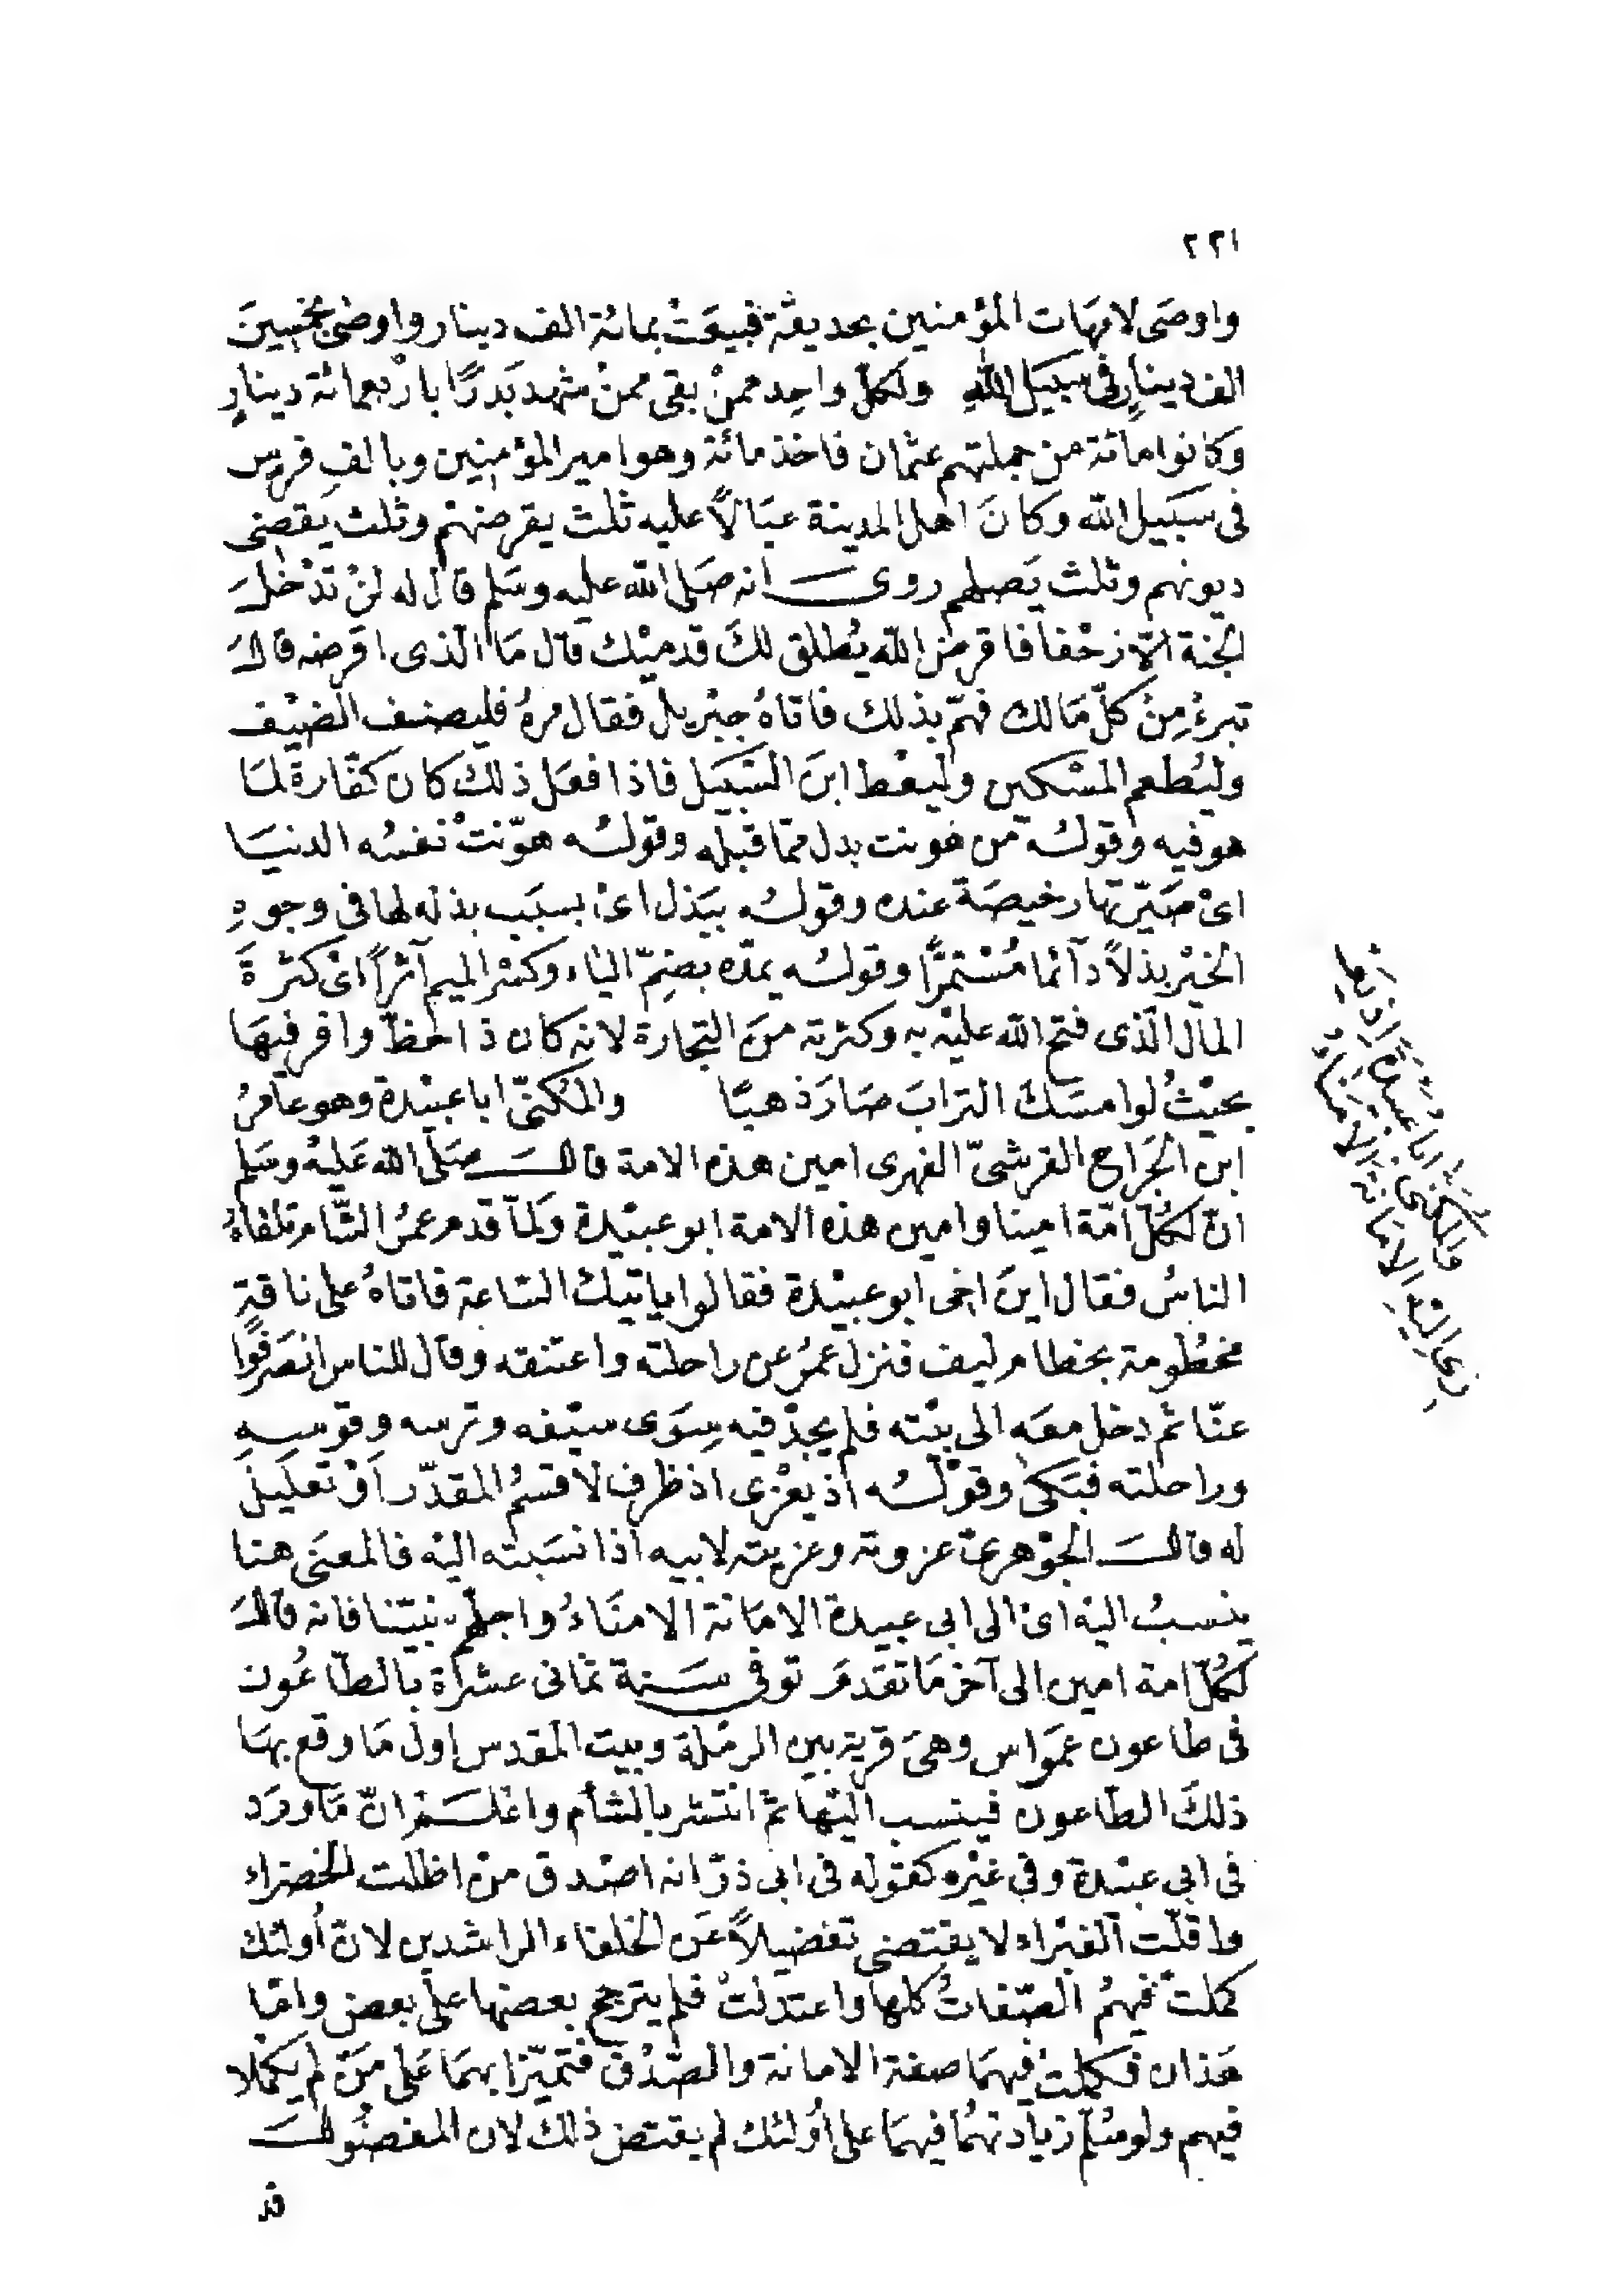 ٢٢١
واوصَى لامهَات المؤمنين بحديقة فبيعَتْ بمائة الف دينار واوصٰى بخمْسِينَ
الف دينارٍ فى سبيَل اللهِ ولكلّ واحِد ممنْ بقى ممنْ شهد بَدرًا بارْبعمائة دينارٍ
وكانوا مائة من جملتهم عثمان فاخذ مائة وهو امير المؤمنِين وبالفِ فرسٍ
فى سَبَيل الله وكانَ اهل المدينة عيَالاً عليه ثلث يقرضهم وثلث يقضى
ديونهم وثلث يَصلهم روى انه صَلى الله عليه وسَلم قال له لنْ تدْخلَ
الجنة الّا زحْفا فاقرض الله يُطلق لكَ قدميْك قال مَا الّذى اقرضه قالَ
تبرءُ مِنْ كلّ مَالك فهمّ بذلك فاتاهُ جبْريل فقال مرهُ فليضف الضيْف
وليُطعم المسْكين وليعْط ابنَ السَّبيَل فاذا فعَل ذلكَ كان كفّارة لمَا
هو فيه وقولُه من هونت بدل ممّا قبله وقولُه هوّنتْ نفسُه الدنيَا
اىْ صَيّرتها رخيصَة عنده وقولُه ببَذل اىْ بسبَب بذله لها فى وجوهِ
الخيْر بذلاً دآئما مُسْتمرًّا وقولُه يمدّه بضمّ الياء وكسْر الميم آثرًا اىْ كثرةَ
المال الّذى فتح الله عليْه به وكثرته منَ التجارة لانه كان ذا حظّ وافر فيهَا
بحيْثُ لو امسَكَ الترابَ صَارَ ذهبًا والمُكنّى ابا عبيْدة وهو عامرُ
ابن الجَراح القرشىّ الفهرى امين هذه الامة قالَ صَلّى الله عَليهْ وسَلم
انّ لكُلّ امّة امينا وامين هذه الامة ابو عبيْدة ولمّا قدم عمرُ الشّام تلقاهُ
الناسُ فقال اينَ اخى ابو عبيْدة فقالوا ياتيك السَّاعة فاتاهُ على ناقةٍ
مخطُومة بخطام ليف فنزل عمرُ عن راحلته واعتنقه وقال للناس انصَرفوُا
عنّا ثم دخل معَه الى بيْته فلم يجدْ فيه سِوَى سيْفه وترسه وقوسِهِ
وراحلته فبَكىٰ وقوْلُه اذ يعْزى اذ ظرف لاقسمُ المقدّر اَوْ تعليَل
له قالَ الجوْهرىّ عزوته وعزيته لابيه اذا نسَبته اليْه فالمعنَى هنا
ينسبُ اليْه اىْ الى ابى عبيدة الامَانة الامنَاءُ واجلّهم نبيّنا فانه قالَ
لكُلّ امة امين الى آخر مَا تقدمَ توفى سَنة ثمانى عشرة بالطّاعُون
فى طاعون عمَواس وهىَ قرية بين الرمْلة وبيت المقدس اول مَا وقع بهَا
ذلكَ الطّاعون فينسب اليْها ثمّ انتشر بالشأم واعْلَم انّ مَا ورَد
فى ابى عبيْدة وفى غيْره كقوله فى ابى ذرّ انه اصْدق منْ اظلت الخضراء
واقلّت الغبْراء لا يقتضى تفضيلاً عَن الخلفاء الراشدين لانّ اُولئك
كملتْ فيهمُ الصّفاتُ كلها واعتدلتْ فلم يترجح بعضها على بعض وامّا
هَذان فكملتْ فيهمَا صفة الامانة والصّدْق فتميّزا بهمَا عَلى مَنْ لم يكملا
فيهم ولو سُلّم زيادتهُما فيهمَا على اُولئك لم يقتض ذلك لان المفضُولَ
قد
والمُكنَّى اَبا عُبَيْدَةَ اِذ يَعْ
زِى اِليْهِ الاَمَانَةَ الاُمَنَاءُ